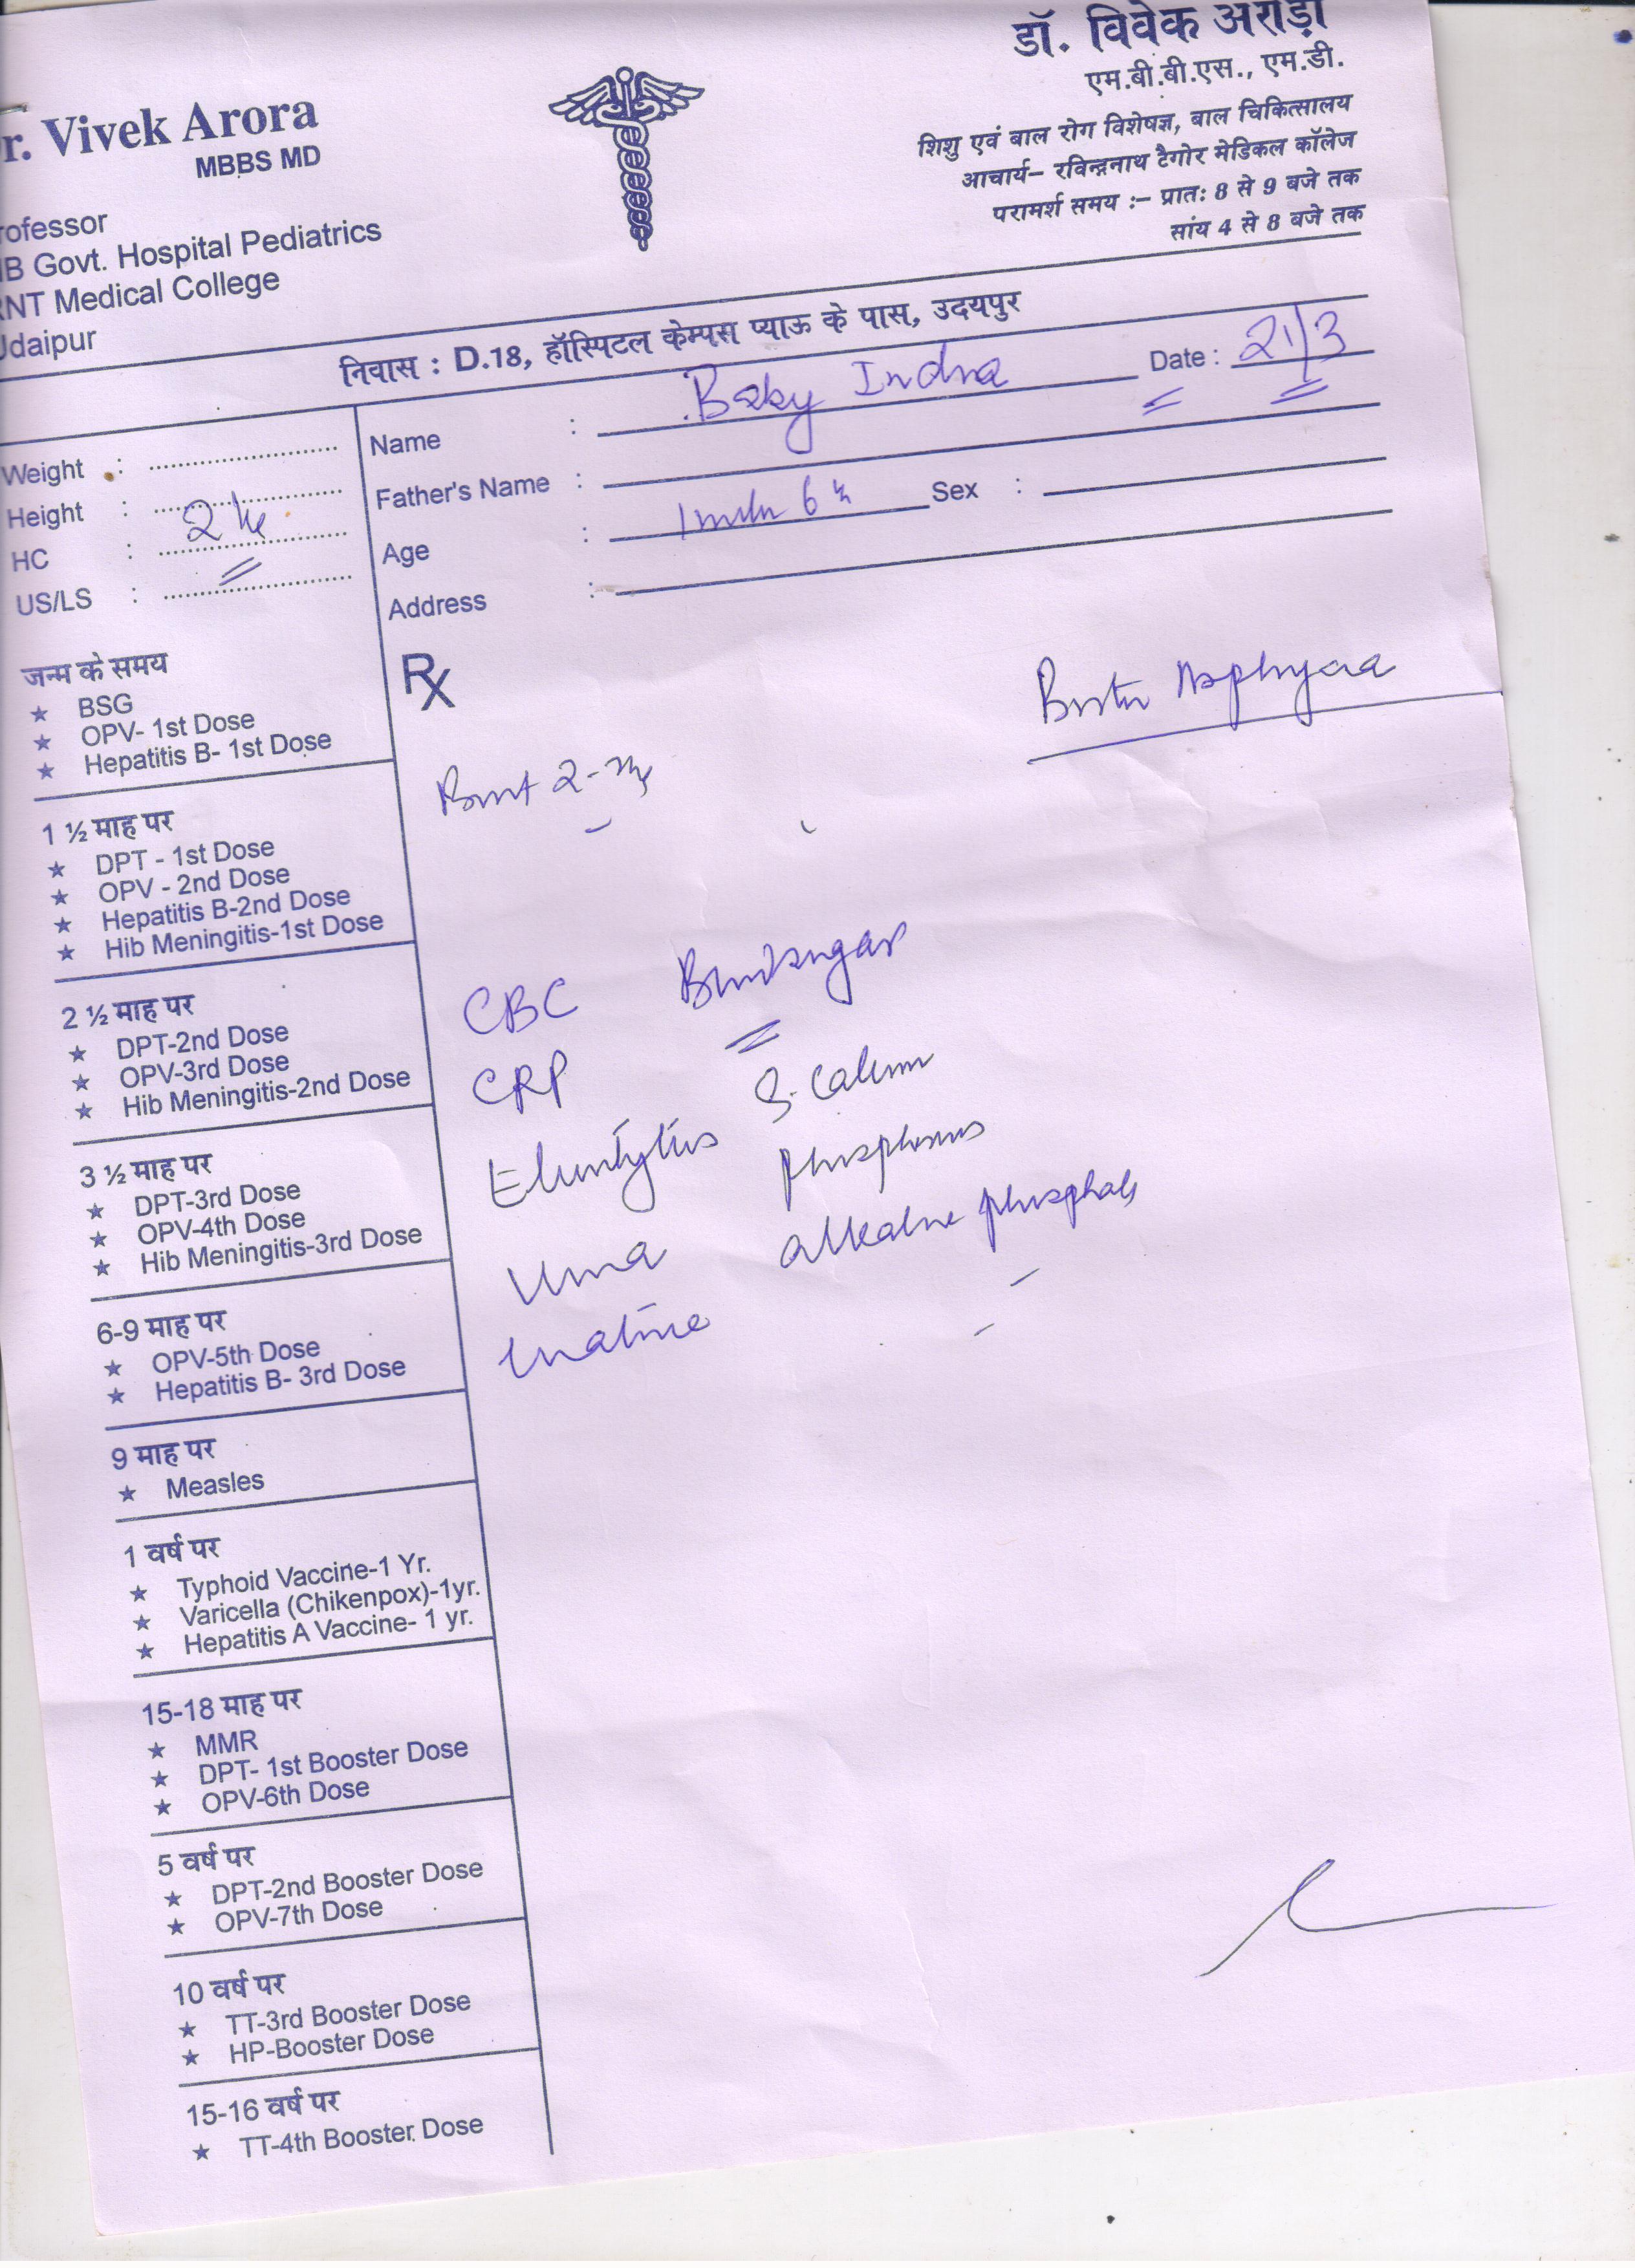 r. Vivek Arora
MBBS MD
rofessor
B Govt. Hospital Pediatrics
RNT Medical College
Udaipur
डॉ. विवेक अरोड़ा
एम.बी.बी.एस., एम.डी.
शिशु एवं बाल रोग विशेषज्ञ, बाल चिकित्सालय
आचार्य– रविन्द्रनाथ टैगोर मेडिकल कॉलेज
परामर्श समय :– प्रातः 8 से 9 बजे तक
सांय 4 से 8 बजे तक
निवास : D.18, हॉस्पिटल केम्पस प्याऊ के पास, उदयपुर
Name : Baby Indra Date : 21/3
Father's Name :
Age : 6 Sex :
Address :
Weight :
Height :
HC : 2
US/LS :
Rx
2
CBC
CRP S. Calcium
Phosphorus
alkaline phosphate
जन्म के समय
★ BSG
★ OPV- 1st Dose
★ Hepatitis B- 1st Dose
1 ½ माह पर
★ DPT - 1st Dose
★ OPV - 2nd Dose
★ Hepatitis B-2nd Dose
★ Hib Meningitis-1st Dose
2 ½ माह पर
★ DPT-2nd Dose
★ OPV-3rd Dose
★ Hib Meningitis-2nd Dose
3 ½ माह पर
★ DPT-3rd Dose
★ OPV-4th Dose
★ Hib Meningitis-3rd Dose
6-9 माह पर
★ OPV-5th Dose
★ Hepatitis B- 3rd Dose
9 माह पर
★ Measles
1 वर्ष पर
★ Typhoid Vaccine-1 Yr.
★ Varicella (Chikenpox)-1yr.
★ Hepatitis A Vaccine- 1 yr.
15-18 माह पर
★ MMR
★ DPT- 1st Booster Dose
★ OPV-6th Dose
5 वर्ष पर
★ DPT-2nd Booster Dose
★ OPV-7th Dose
10 वर्ष पर
★ TT-3rd Booster Dose
★ HP-Booster Dose
15-16 वर्ष पर
★ TT-4th Booster Dose